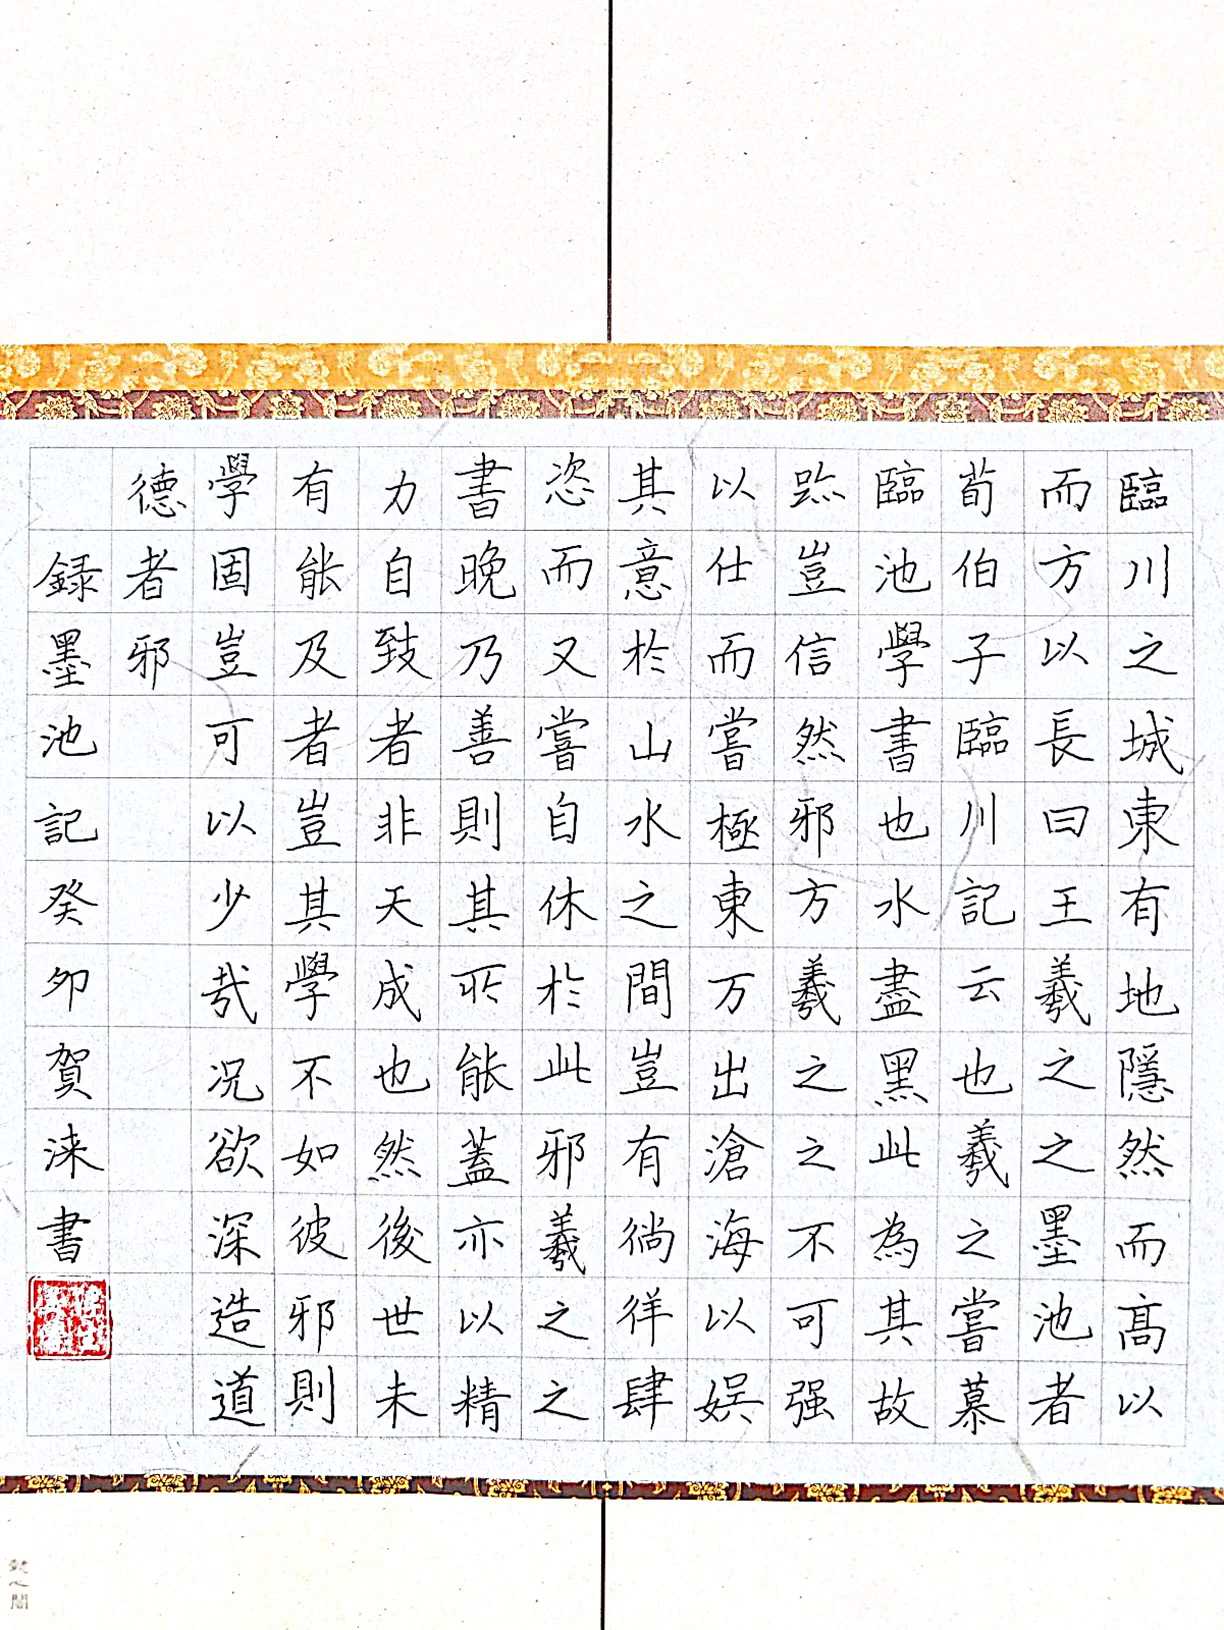 臨川之城東有地隱然而高以
而方以長曰王羲之之墨池者
荀伯子臨川記云也羲之嘗慕
臨池學書也水盡黑此為其故
跡豈信然邪方羲之之不可强
以仕而嘗極東万出滄海以娱
其意於山水之間豈有徜徉肆
恣而又嘗自休於此邪羲之之
書晚乃善則其所能蓋亦以精
力自致者非天成也然後世未
有能及者豈其學不如彼邪則
學固豈可以少哉况欲深造道
德者邪
録墨池記癸卯賀涞書